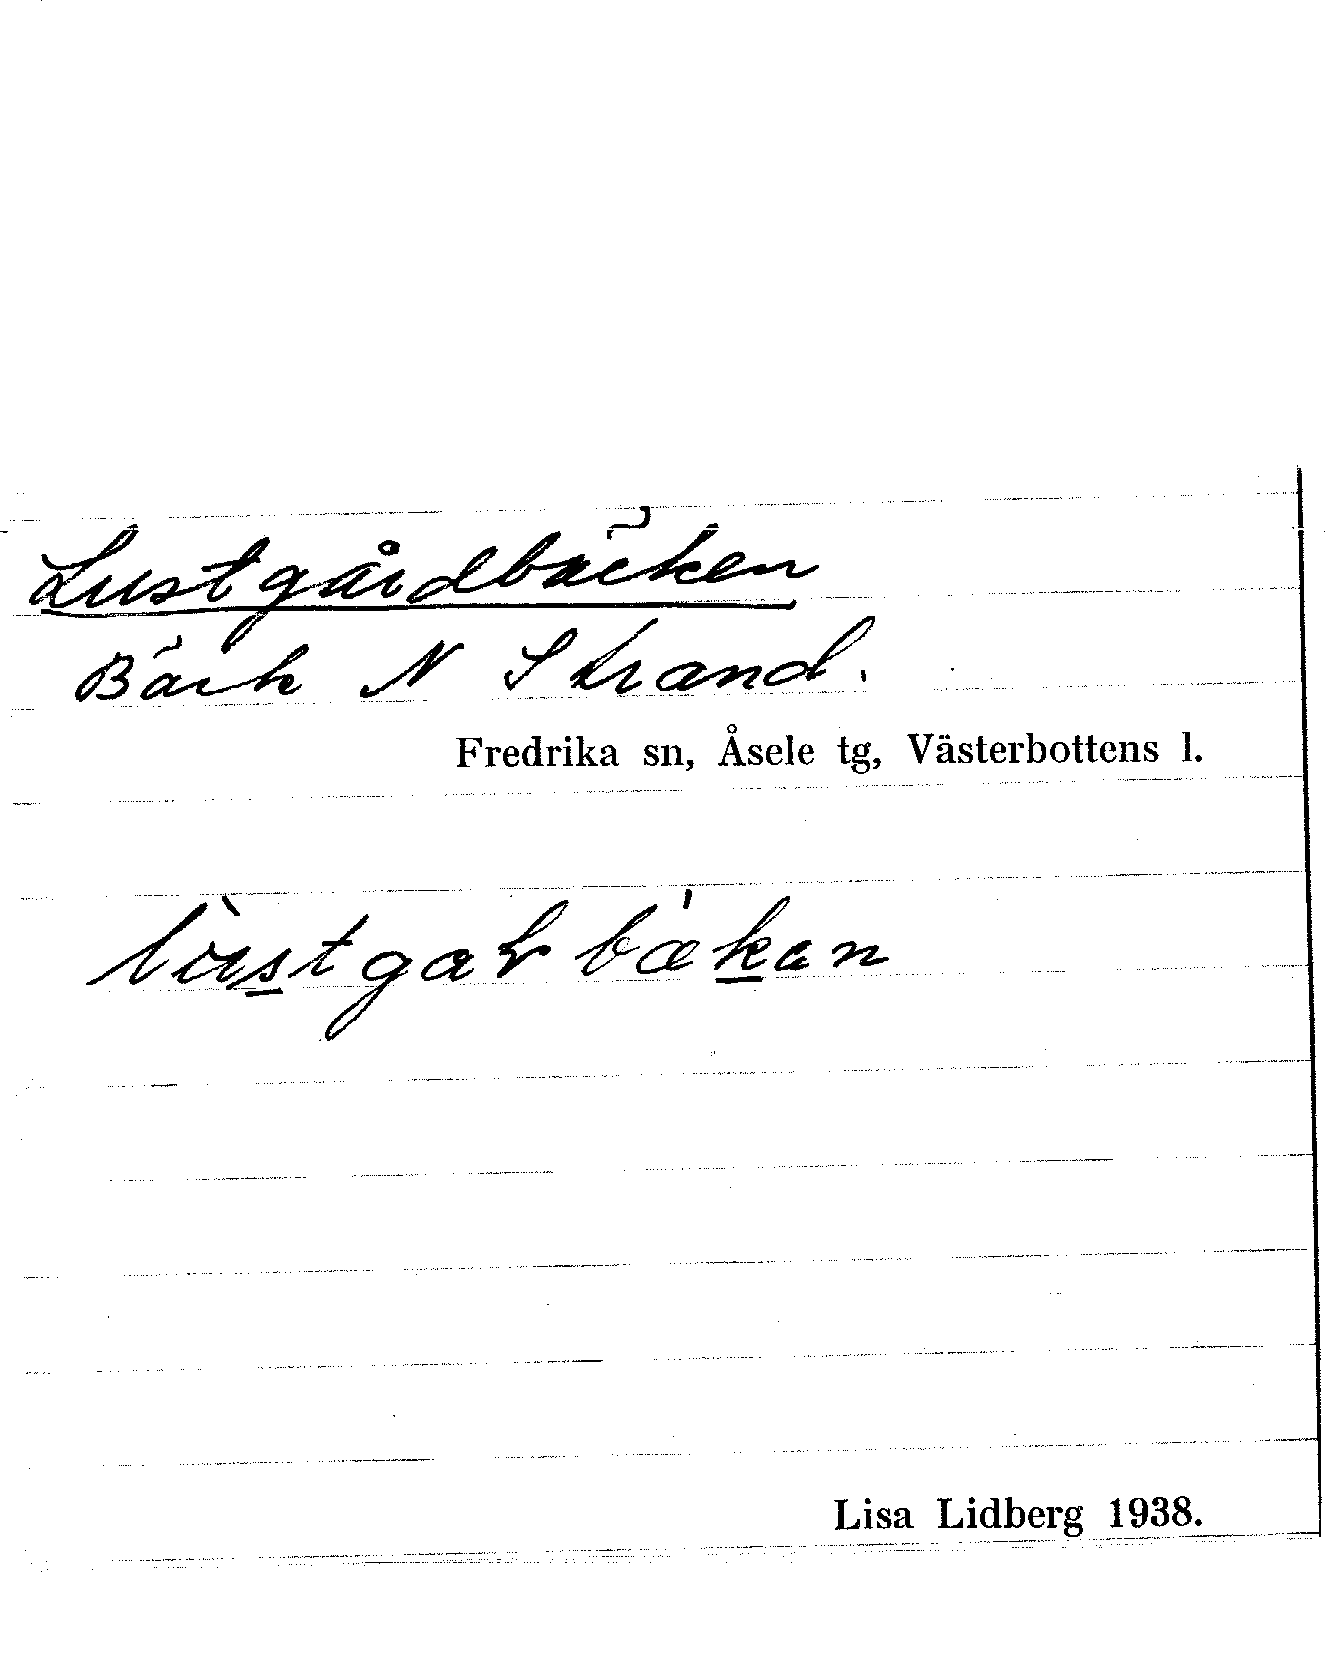 Lustgårdbäcken
Bäck N Strand.
Fredrika sn, Åsele tg, Västerbottens l.
Lisa Lidberg 1938.